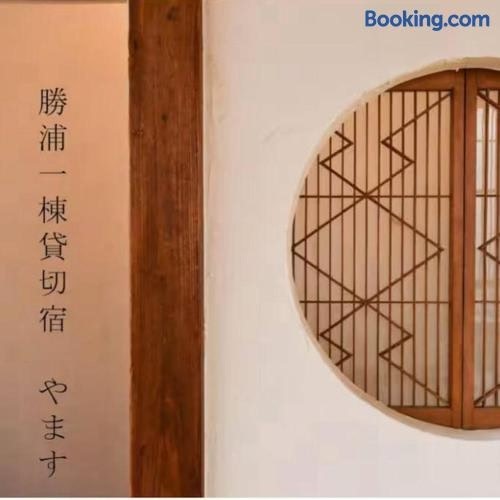 Booking.com
勝浦一棟貸切宿 やます